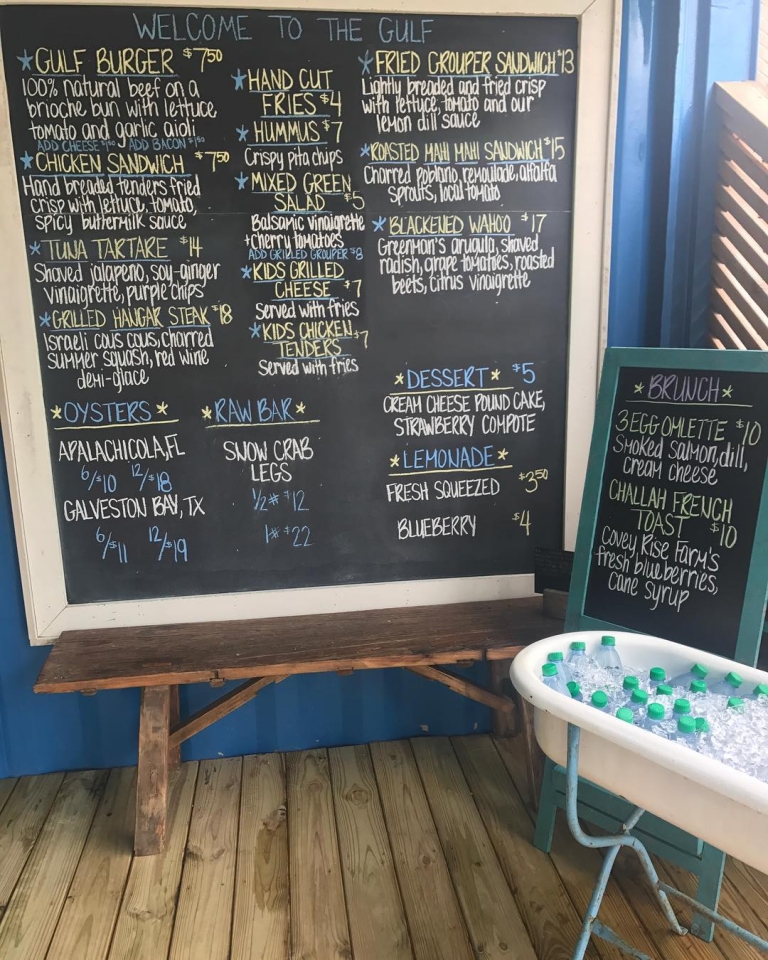 WELCOME TO THE GULF
GULF BURGER $750
100% natural beef on a
brioche bun with lettuce
tomato and garlic aioli
ADD CHEESE $1.50 ADD BACON $1.50
CHICKEN SANDWICH $750
Hand breaded tenders fried
crisp with lettuce, tomato,
spicy buttermilk sauce
TUNA TARTARE $14
Shaved jalapeno, soy-ginger
vinaigrette, purple chips
GRILLED HANGAR STEAK $18
Israeli cous cous, charred
summer squash, red wine
demi-glace
HAND CUT
FRIES $4
HUMMUS $7
Crispy pita chips
MIXED GREEN
SALAD $5
Balsamic vinaigrette
+cherry tomatoes
ADD GRILLED GROUPER $8
KIDS GRILLED
CHEESE $7
Served with fries
KIDS CHICKEN
TENDERS $7
Served with fries
FRIED GROUPER SANDWICH $13
Lightly breaded and fried crisp
with lettuce, tomato and our
lemon dill sauce
ROASTED MAHI MAHI SANDWICH $15
Charred poblano remoulade, alfalfa
sprouts, local tomato
BLACKENED WAHOO $17
Greenman's arugula, shaved
radish, grape tomatoes, roasted
beets, citrus vinaigrette
OYSTERS
APALACHICOLA, FL
6/$10 12/$18
GALVESTON BAY, TX
6/$11 12/$19
RAW BAR
SNOW CRAB
LEGS
1/2# $12
1# $22
DESSERT $5
CREAM CHEESE POUND CAKE,
STRAWBERRY COMPOTE
LEMONADE
FRESH SQUEEZED $350
BLUEBERRY $4
BRUNCH
3 EGG OMLETTE $10
Smoked salmon, dill,
cream cheese
CHALLAH FRENCH
TOAST $10
Covey Rise Farm's
fresh blueberries,
cane syrup